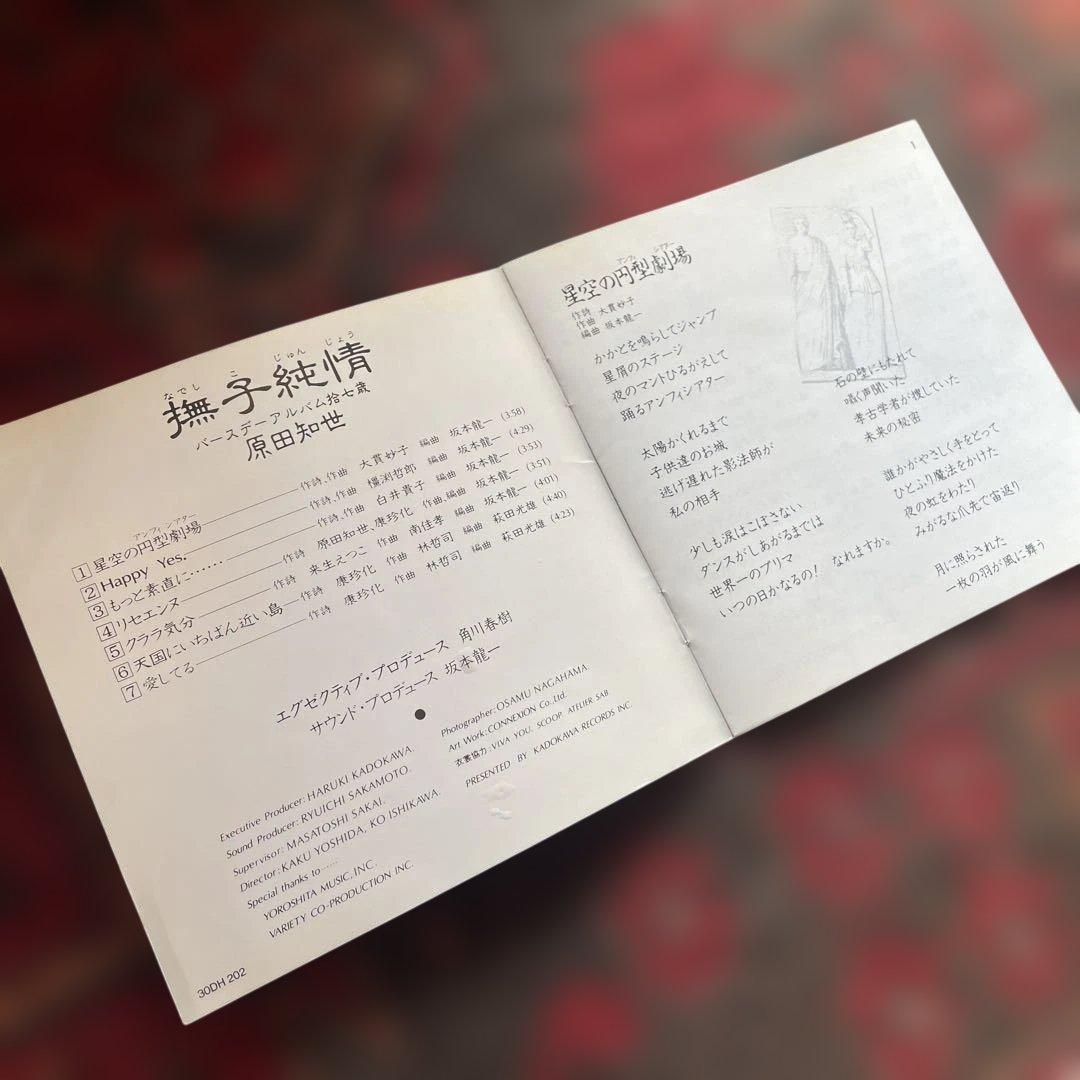 なでし こ じゅん じょう
撫子純情
バースデーアルバム拾七歳
原田知世
アンフィシアター
1 星空の円型劇場 作詩、作曲 大貫妙子 編曲 坂本龍一 (3:58)
2 Happy Yes. 作詩、作曲 橿渕哲郎 編曲 坂本龍一 (4:29)
3 もっと素直に…… 作詩、作曲 白井貴子 編曲 坂本龍一 (3:53)
4 リセエンヌ 作詩 原田知世、康珍化 作曲、編曲 坂本龍一 (3:51)
5 クララ気分 作詩 来生えつこ 作曲 南佳孝 編曲 坂本龍一 (4:01)
6 天国にいちばん近い島 作詩 康珍化 作曲 林哲司 編曲 萩田光雄 (4:40)
7 愛してる 作詩 康珍化 作曲 林哲司 編曲 萩田光雄 (4:23)
エグゼクティブ・プロデュース 角川春樹
サウンド・プロデュース 坂本龍一
●
Executive Producer: HARUKI KADOKAWA.
Sound Producer: RYUICHI SAKAMOTO.
Supervisor: MASATOSHI SAKAI.
Director: KAKU YOSHIDA, KO ISHIKAWA.
Special thanks to……
YOROSHITA MUSIC, INC.
VARIETY CO-PRODUCTION INC.
Photographer: OSAMU NAGAHAMA.
Art Work: CONNEXION Co., Ltd.
衣裳協力: VIVA YOU. SCOOP. ATELIER SAB
PRESENTED BY KADOKAWA RECORDS INC.
30DH 202
1
アンフィ シアター
星空の円型劇場
作詩 大貫妙子
作曲
編曲 坂本龍一
かかとを鳴らしてジャンプ
星屑のステージ
夜のマントひるがえして
踊るアンフィシアター
太陽がくれるまで
子供達のお城
逃げ遅れた影法師が
私の相手
少しも涙はこぼさない
ダンスがしあがるまでは
世界一のプリマ
いつの日かなるの! なれますか。
石の壁にもたれて
囁く声聞いた
考古学者が捜していた
未来の秘密
誰かがやさしく手をとって
ひとふり魔法をかけた
夜の虹をわたり
みがるな爪先で宙返り
月に照らされた
一枚の羽が風に舞う